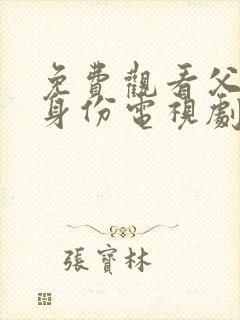 免費觀看父
身份電視劇
張寶林